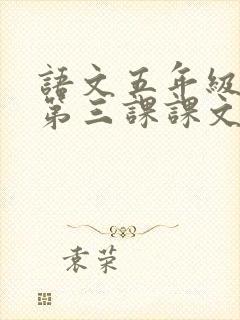 語文五年級
第三課課文
袁荣